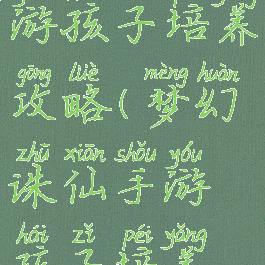 游孩子培养
gōng lüè mèng huàn
攻略(梦幻
zhū xiān shǒu yóu
诛仙手游
hái zǐ péi yǎng
孩子培养